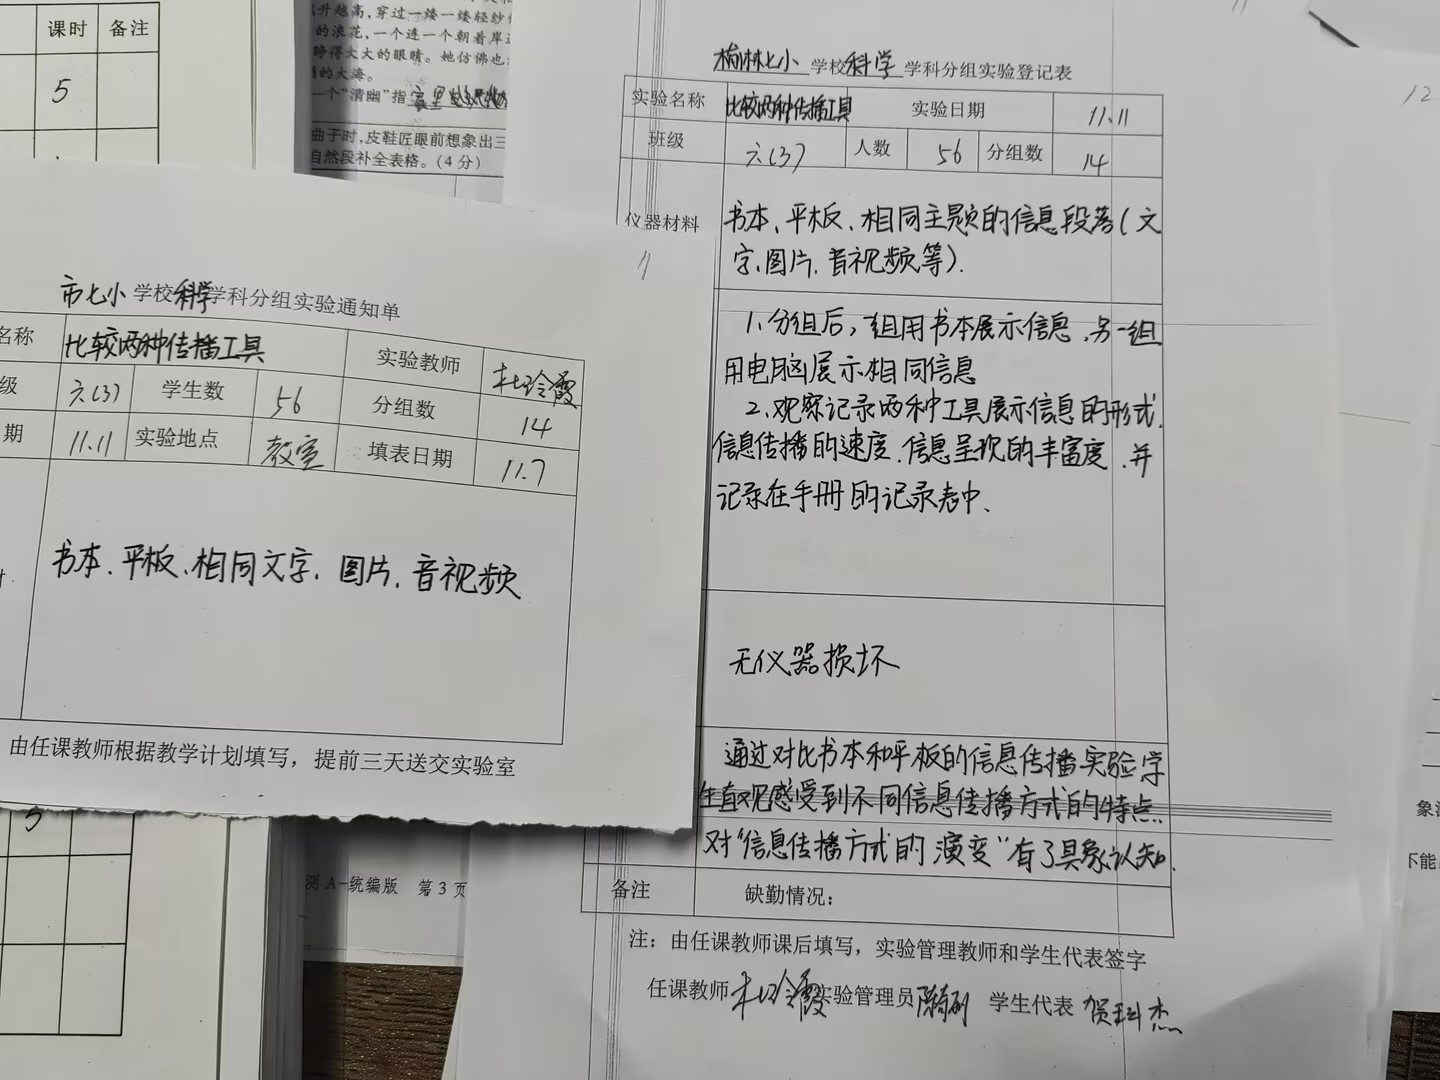 课时 备注
5
升越高，穿过一缕一缕轻纱
的浪花，一个连一个朝着岸
睁得大大的眼睛。她仿佛也
的大海。
一个“清幽”指
曲子时，皮鞋匠眼前想象出三
自然段补全表格。（4分）
市七小 学校 科学 学科分组实验通知单
名称 比较两种传播工具 实验教师 杜玲霞
级 六（3） 学生数 56 分组数 14
期 11.11 实验地点 教室 填表日期 11.7
书本、平板、相同文字、图片、音视频
由任课教师根据教学计划填写，提前三天送交实验室
测A-统编版 第3页
榆林七小 学校 科学 学科分组实验登记表
实验名称 比较两种传播工具 实验日期 11.11
班级 六（3） 人数 56 分组数 14
仪器材料 书本、平板、相同主题的信息段落（文
字、图片、音视频等）.
1、分组后，一组用书本展示信息，另一组
用电脑展示相同信息
2、观察记录两种工具展示信息的形式、
信息传播的速度、信息呈现的丰富度，并
记录在手册的记录表中、
无仪器损坏
通过对比书本和平板的信息传播实验学
生直观感受到不同信息传播方式的特点..
对“信息传播方式的演变”有了具象认知.
备注 缺勤情况：
注：由任课教师课后填写，实验管理教师和学生代表签字
任课教师 杜玲霞 实验管理员 学生代表 贺科杰
12
象
不能